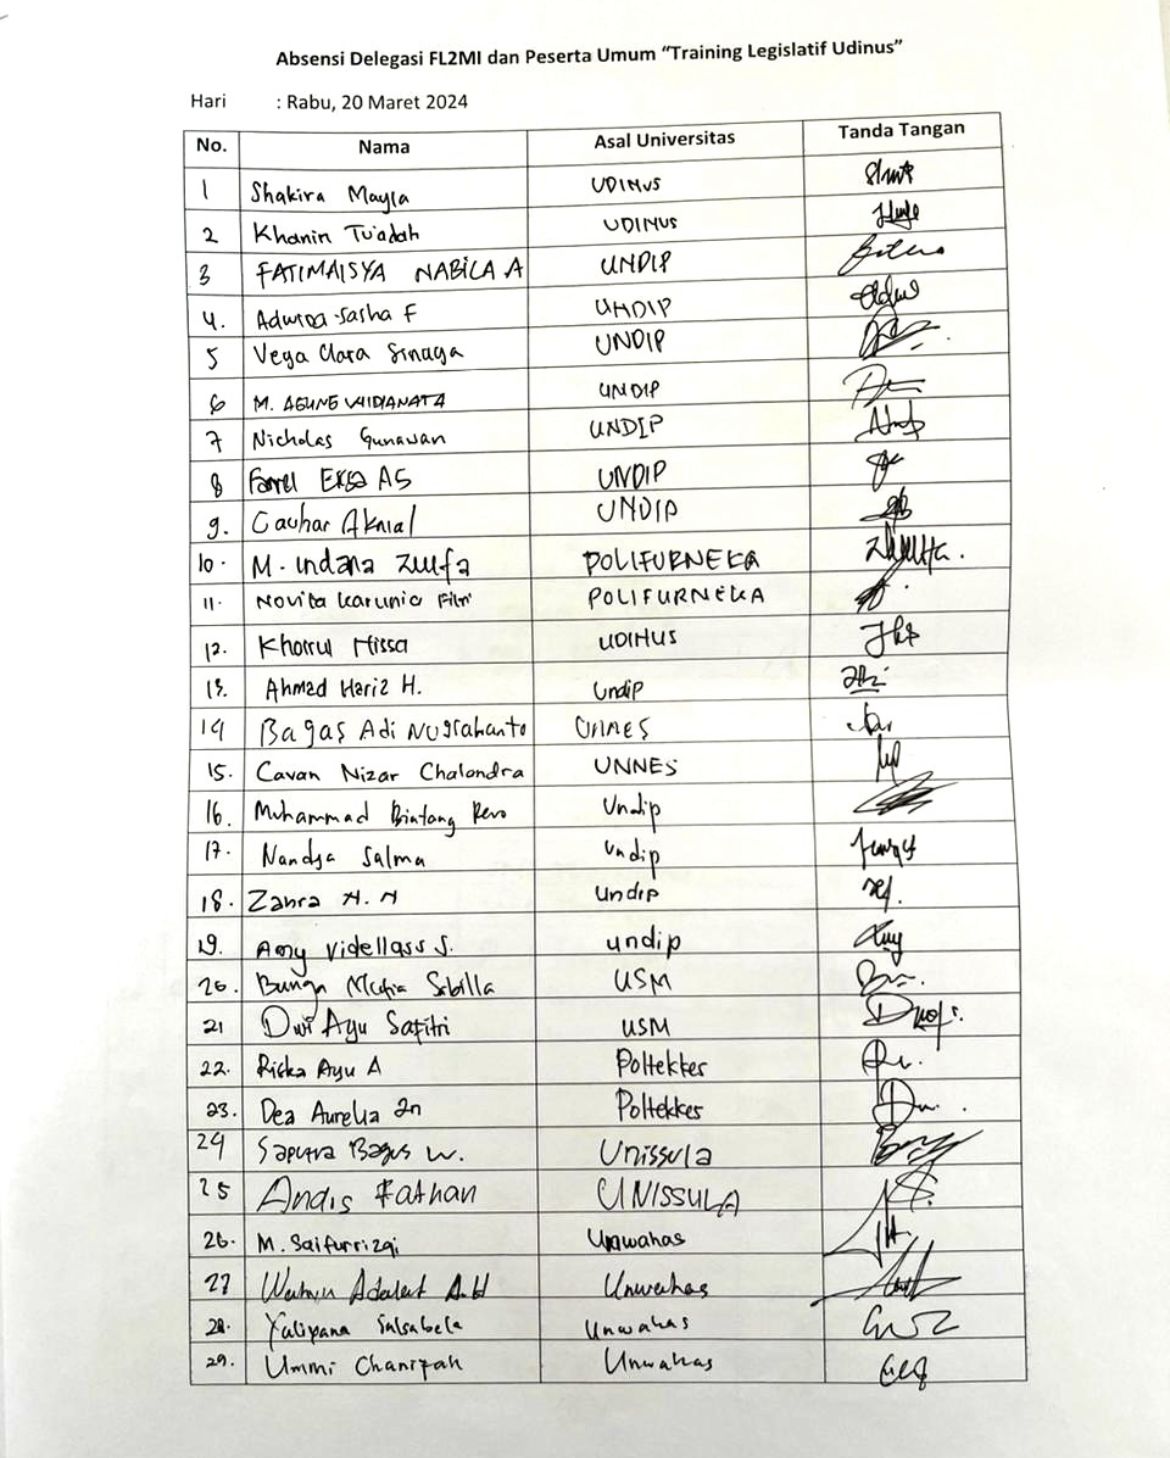 Absensi Delegasi FL2MI dan Peserta Umum “Training Legislatif Udinus”
Hari : Rabu, 20 Maret 2024
No. Nama Asal Universitas Tanda Tangan
1 Shakira Mayla UDINUS
2 Khanin Tu'adah UDINUS
3 FATIMAISYA NABILA A UNDIP
4. Sasha F UNDIP
5 Vega Clara Sinaga UNDIP
6 M. AGUNG WIDIANATA UNDIP
7 Nicholas Gunawan UNDIP
8 Farrel Eksa AS UNDIP
9. Gauhar Akmal UNDIP
10. M. Indana Zulfa POLIFURNEKA
11. Novita Karunia Fitri POLIFURNEKA
12. Khoirul Nissa UDINUS
13. Ahmad Hariz H. Undip
14 Bagas Adi Nugrahanto UNNES
15. Cavan Nizar Chalondra UNNES
16. Muhammad Bintang Revo Undip
17. Nandya Salma Undip
18. Zahra N. N Undip
19. S. undip
20. Bunga Mutia Sabilla USM
21 Dwi Ayu Safitri USM
22. Riska Ayu A Poltekkes
23. Dea Aurelia Poltekkes
24 Saputra Bagus W. Unissula
25 Andis Fathan UNISSULA
26. M. Saifurrizqi Unwahas
27 Wahyu A.H Unwahas
28. Yuliyana Salsabela Unwahas
29. Ummi Chanifah Unwahas